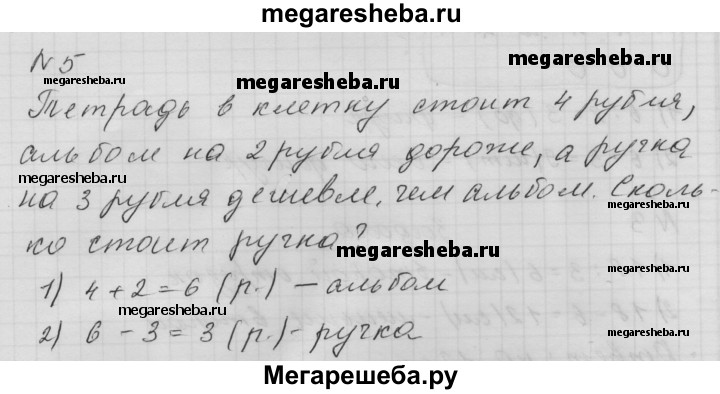 megaresheba.ru
N 5
megaresheba.ru
megaresheba.ru
megaresheba.ru
Тетрадь в клетку стоит 4 рубля,
альбом на 2 рубля дороже, а ручка
megaresheba.ru
на 3 рубля дешевле, чем альбом. Сколь-
megaresheba.ru
ко стоит ручка?
megaresheba.ru
megaresheba.ru
1) 4 + 2 = 6 (р.) – альбом
megaresheba.ru
2) 6 - 3 = 3 (р.) - ручка
megaresheba.ru
Мегарешеба.ру